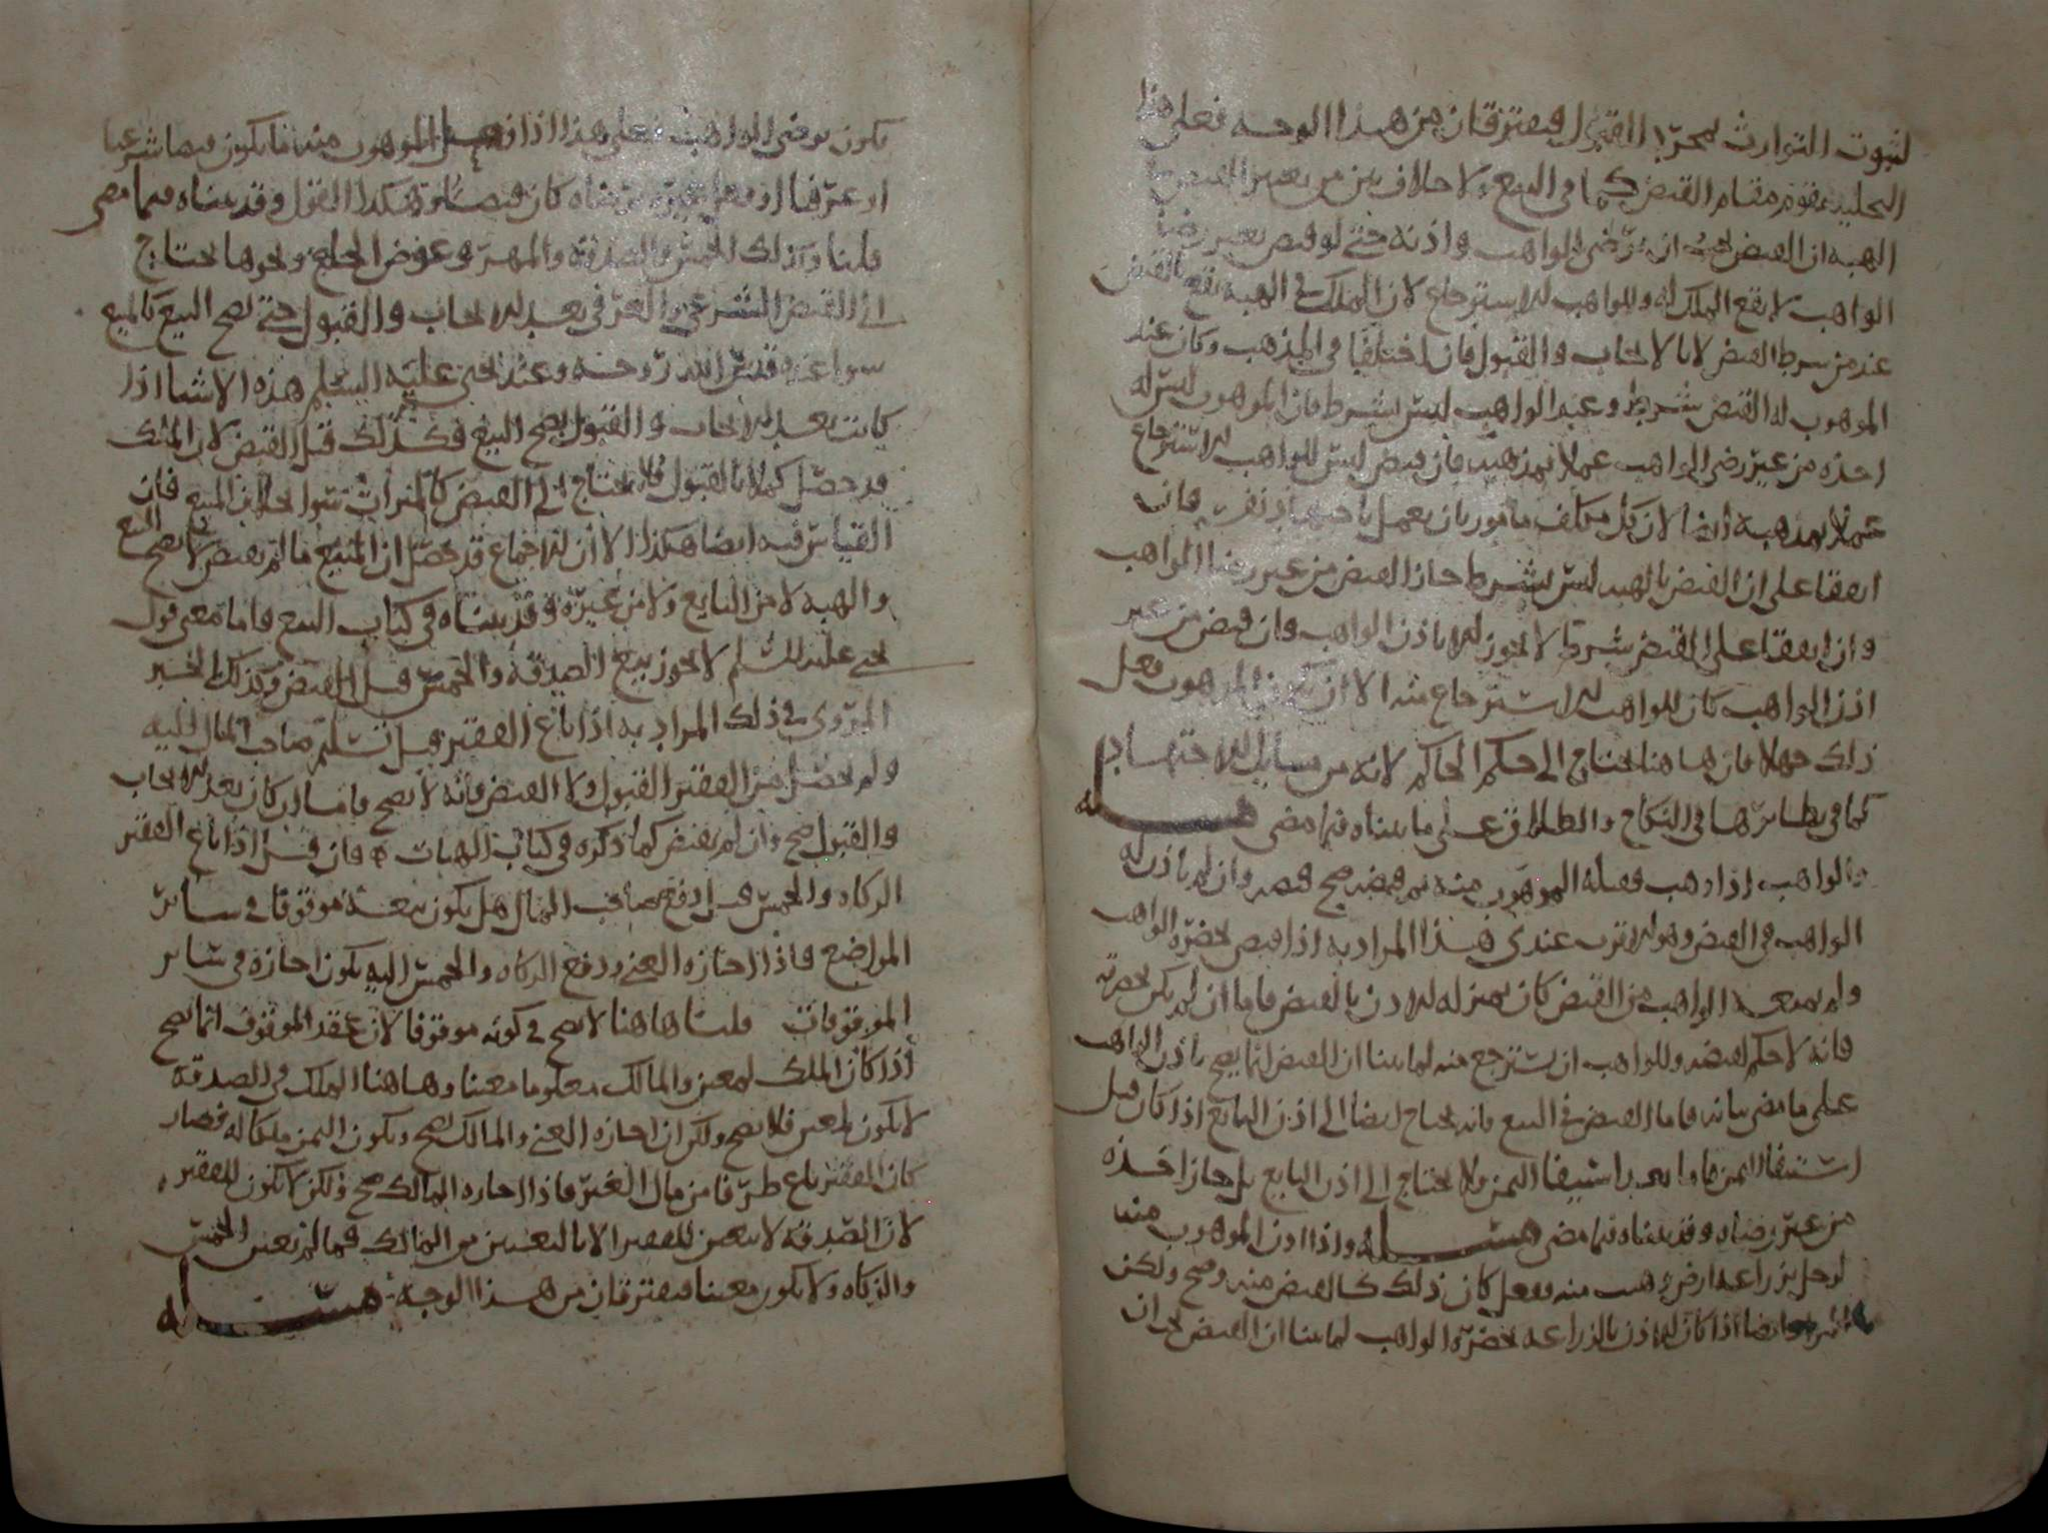 لثبوت التوارث بمجرد القبول فيفترقان من هذا الوجه فعلى هذا
التخلية تقوم مقام القبض كما في البيع ولا خلاف بين من يعتبر القبض في
الهبة ان القبض يجب ان يرضى الواهب واذنه حتى لو قبض بغير رضا
الواهب لا يقع الملك له وللواهب الاسترجاع لان الملك في الهبة يقع بالقبض
عند من شرط القبض لا بالايجاب والقبول فان اختلفا في المذهب وكان عند
الموهوب له القبض شرط وعند الواهب ليس بشرط فان الموهوب ليس له
اخذه من غير رضى الواهب عملا بمذهبه فان قبض ليس للواهب الاسترجاع
عملا بمذهبه ايضا لان كل مكلف مامور بان يعمل باجتهاد نفسه فان
اتفقا على ان القبض بالهبة ليس بشرط جاز القبض من غير رضا الواهب
وان اتفقا على القبض شرط لا يجوز الا باذن الواهب وان قبض من غير
اذن الواهب كان للواهب الاسترجاع منه الا ان يكون الموهوب فعل
ذلك جهلا فان هاهنا يحتاج الى حكم الحاكم لانه من مسايل الاجتهاد
كما في نظائرها في النكاح والطلاق على ما بيناه فيما مضى مسألة
والواهب اذا وهب فقبله الموهوب منه ثم قبضه صح قبضه وان لم ياذن له
الواهب في القبض وهو الاقرب عندي هذا المراد به اذا قبض بحضرة الواهب
ولم يمنعه الواهب من القبض كان بمنزلة الاذن بالقبض فاما ان لم يكن بحضرته
فانه لا حكم لقبضه وللواهب ان يسترجع منه لما بينا ان القبض انما يصح باذن الواهب
على ما مضى بيانه فاما القبض في البيع فانه يحتاج ايضا الى اذن البايع اذا كان قبل
استيفاء الثمن فاما بعد استيفاء الثمن ولا يحتاج الى اذن البايع بل جاز اخذه
من غير رضاه وقد بيناه فيما مضى مسألة واذا اذن الموهوب منه
لرجل بزراعة ارض وهبت منه ففعل كان ذلك كالقبض منه وصح ولكن
المراد ايضا اذا كان الاذن بالزراعة بحضرة الواهب لما بينا ان القبض يجب ان
يكون برضى الواهب فعلى هذا اذا فعل الموهوب منه ما يكون قبضا شرعيا
او عرفيا او فعل غيره برضاه كان قبضا هكذا القول وقد بيناه فيما مضى
قلنا وكذلك الخمس والصدقة والمهر وعوض الخلع ونحوها يحتاج
الى القبض الشرعي والعرفي بعد الايجاب والقبول حتى يصح البيع كالمبيع
سواء عنده قدس الله روحه وعند يحيى عليه السلم هذه الاشيا اذا
كانت بعد الايجاب والقبول يصح البيع فكذلك قبل القبض لان الملك
قد حصل كملا بالقبول فلا يحتاج الى القبض كالميراث سوا بخلاف المبيع فان
القياس فيه ايضا هكذا الا ان الاجماع قد حصل ان المبيع ما لم يقبض لا يصح البيع
والهبة لا من البايع ولا من غيره وقد بيناه في كتاب البيع فاما معنى قول
يحيى عليه السلم لا يجوز بيع الصدقة والخمس قبل القبض وكذلك الخبر
المروي في ذلك المراد به اذا باع الفقير قبل تسليم صاحب المال اليه
ولم يحصل من الفقير القبول ولا القبض فانه لا يصح فاما اذا كان بعد الايجاب
والقبول صح وان لم يقبض كما ذكره في كتاب الهبات فان قيل اذا باع الفقير
الزكاة والخمس قبل دفع صاحب المال هل يكون بيعه موقوفا في سائر
المواضع فاذا اجازه الغني ودفع الزكاة والخمس اليه يكون اجازة في سائر
الموقوفات قلنا هاهنا لا يصح في كونه موقوفا لان عقد الموقوف انما يصح
اذا كان الملك لمعين والمالك معلوما معينا وهاهنا الملك في الصدقة
لا يكون لمعين فلا يصح ولكن ان اجازه الغني والمالك صح ويكون الثمن ملكا له فصار
كان الفقير باع طرفا من مال الغير فاذا اجازه المالك صح ولكن لا يكون للفقير
لان الصدقة لا تتعين للفقير الا بالتعيين من المالك فما لم يعين الخمس
والزكاة ولا يكون معينا فيفترقان من هذا الوجه مسألة